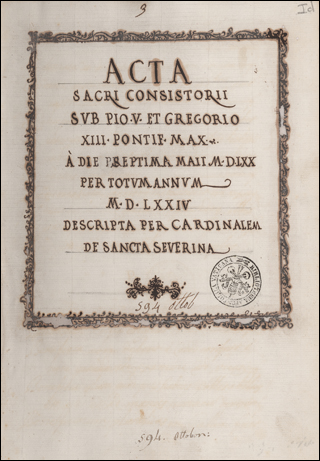 3
ACTA
SACRI CONSISTORII
SVB PIO·V· ET GREGORIO
XIII· PONTIF· MAX·
À DIE SEPTIMA MAII M·DLXX
PER TOTVM ANNVM
M·D·LXXIV
DESCRIPTA PER CARDINALEM
DE SANCTA SEVERINA
594 Ottob
594. Ottobon: